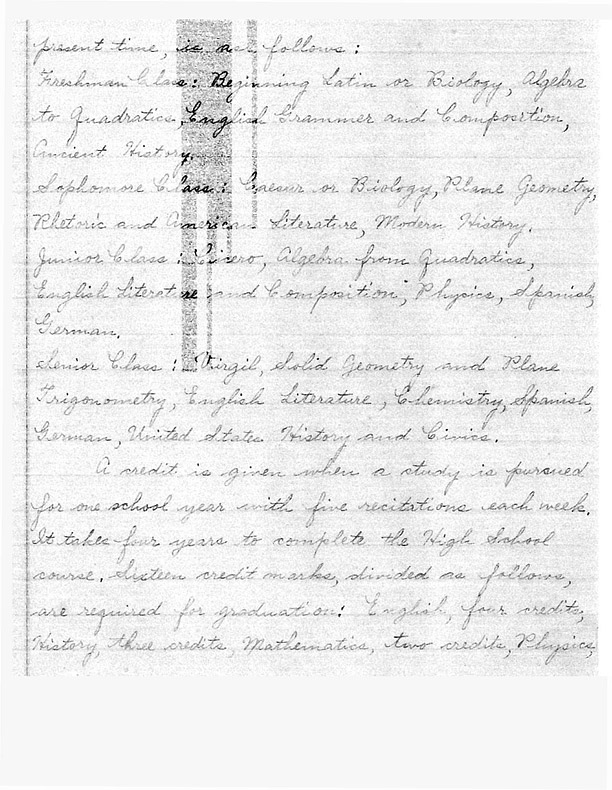 present time, is as follows:
Freshman Class: Beginning Latin or Biology, Algebra
to Quadratics, English Grammer and Composition,
Ancient History.
Sophomore Class: Caesur or Biology, Plane Geometry,
Rhetoric and American Literature, Modern History.
Junior Class: Cicero, Algebra from Quadratics,
English Literature and Composition, Physics, Spanish,
German.
Senior Class: Virgil, Solid Geometry and Plane
Trigonometry, English Literature, Chemistry, Spanish,
German, United States History and Civics.
A credit is given when a study is pursued
for one school year with five recitations each week.
It takes four years to complete the High School
course. Sixteen credit marks, divided as follows,
are required for graduation: English, four credits,
History, three credits, Mathematics, two credits, Physics,